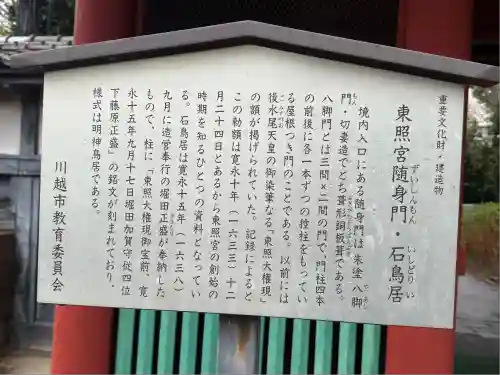 重要文化財・建造物
東照宮随身門・石鳥居
ずいしんもん
いしどりい
境内入口にある随身門は朱塗八脚
門・切妻造でとち葺形銅板葺である。
八脚門とは三間×二間の門で、門柱四本
の前後に各一本ずつの控柱をもってい
る屋根つき門のことである。以前には
後水尾天皇の御染筆なる「東照大権現」
の額が掲げられていた。記録によると
この勅額は寛永十年(一六三三)十二
月二十四日とあるから東照宮の創始の
時期を知るひとつの資料となってい
る。石鳥居は寛永十五年(一六三八)
九月に造営奉行の堀田正盛が奉納した
もので、柱に「東照大権現御宝前、寛
永十五年九月十七日堀田加賀守従四位
下藤原正盛」の銘文が刻まれており、
様式は明神鳥居である。
川越市教育委員会